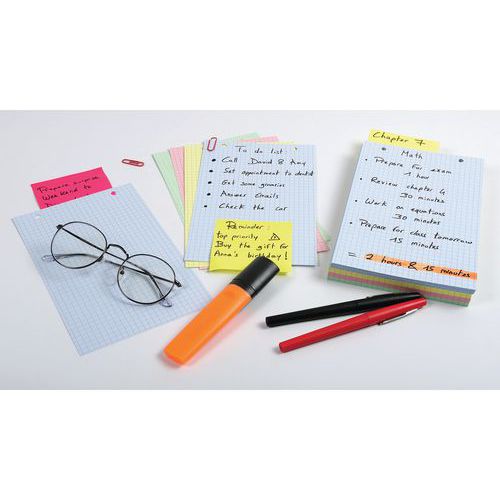 Prepare surprise
Weekend to
To do list:
• Call David & Amy
• Set appointment to dentist
• Get some groceries
• Answer Emails
• Check the car
Reminder:
top priority ⚠
Buy the gift for
Anna's birthday!
Chapter 7
Math
• Prepare for exam
1 hour
• Review chapter 4
30 minutes
• Work on equations
30 minutes
• Prepare for class tomorrow
15 minutes
= 2 hours & 15 minutes